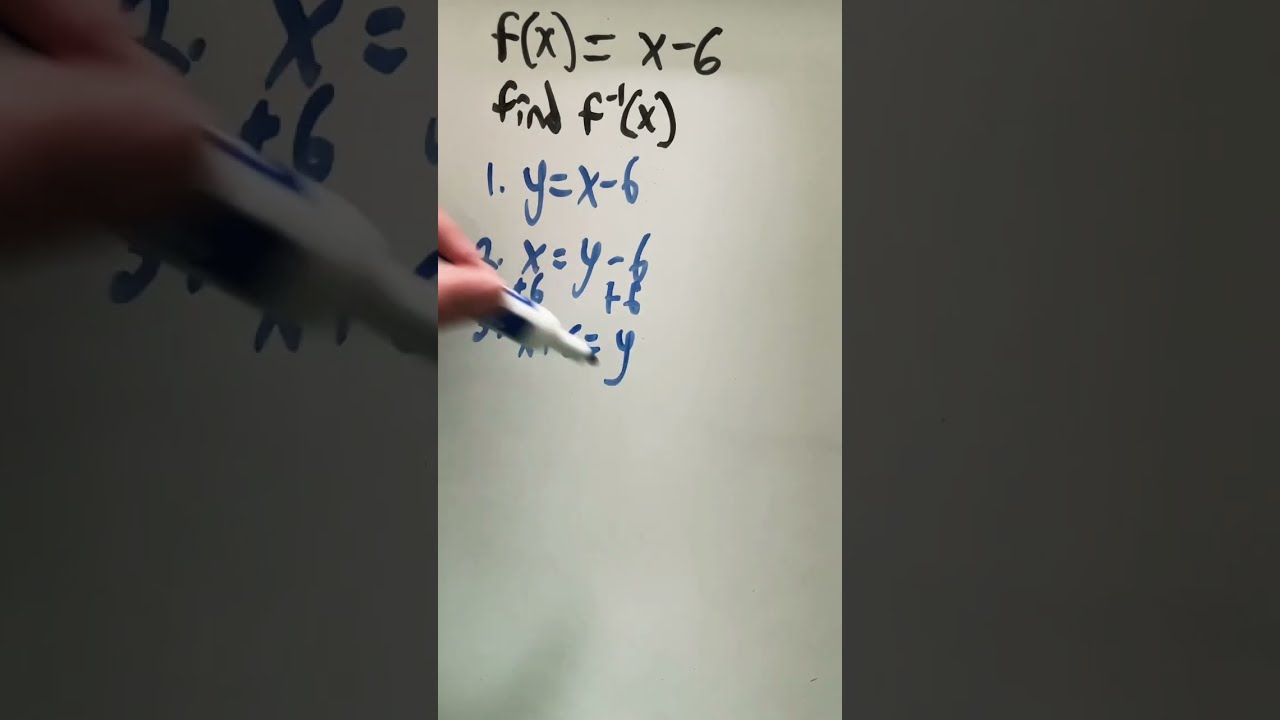 f(x) = x-6
find f⁻¹(x)
1. y=x-6
2. x = y-6
+6 +6
x+6 = y